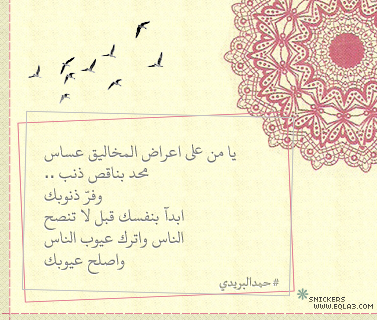 يا من على اعراض المخاليق عساس
محد بناقص ذنب ..
وفّر ذنوبك
ابدآ بنفسك قبل لا تنصح
الناس واترك عيوب الناس
واصلح عيوبك
# حمدالبريدي
SNICKERS
WWW.EQLA3.COM